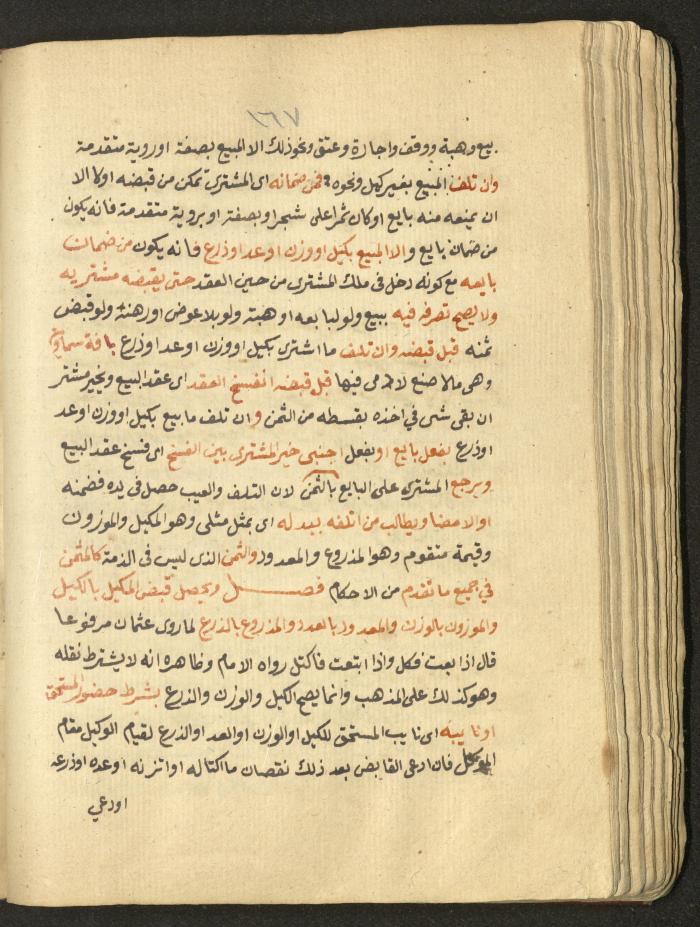 ١٦٧
بيع وهبة ووقف واجارة وعتق ونحو ذلك الا المبيع بصفة اوروية متقدمة
وان تلف المبيع بغير كيل ونحوه فمن ضمانه اى المشترى تمكن من قبضه اوكا الا
ان يمنعه منه بايع اوكان ثمرا على شجر اوبصفة او بروية متقدمة فانه يكون
من ضمان بايع والا المبيع بكيل او وزن اوعد اوذرع فانه يكون من ضمان
بايعه مع كونه دخل فى ملك المشترى من حين العقد حتى يقبضه مشتريه
ولا يصح تصرفه فيه ببيع ولو لبايعه اوهبة ولو بلا عوض اورهنة ولو قبض
ثمنه قبل قبضه وان تلف ما اشترى بكيل او وزن اوعد اوذرع بافة سماوية
وهى مالا صنع لادمى فيها قبل قبضه انفسخ العقد اى عقد البيع ويخير مشتر
ان بقى شى فى اخذه بقسطه من الثمن وان تلف ما بيع بكيل او وزن اوعد
اوذرع بفعل بايع اوبفعل اجنبى خير المشترى بين الفسخ اى فسخ عقد البيع
ويرجع المشترى على البايع بالثمن لان التلف والعيب حصل فى يده فضمنه
اوالامضا ويطالب من اتلفه ببدله اى بمثل مثلى وهو المكيل والموزون
وقيمة متقوم وهو المذروع والمعدود والثمن الذى ليس فى الذمة كالمثمن
في جميع ما تقدم من الاحكام فصل ويحصل قبض المكيل بالكيل
والموزون بالوزن والمعدود بالعدد والمذروع بالذرع لما روى عثمان مرفوعا
قال اذا بعت فكل واذا ابتعت فاكتل رواه الامام وظاهره انه لا يشترط نقله
وهو كذلك على المذهب وانما يصح الكيل والوزن والذرع بشرط حضور المستحق
او نايبه اى نايب المستحق للكيل اوالوزن اوالعد اوالذرع لقيام الوكيل مقام
الموكل فان ادعى القابض بعد ذلك نقصان ما اكتاله او اتزنه اوعده اوذرعه
اودعي